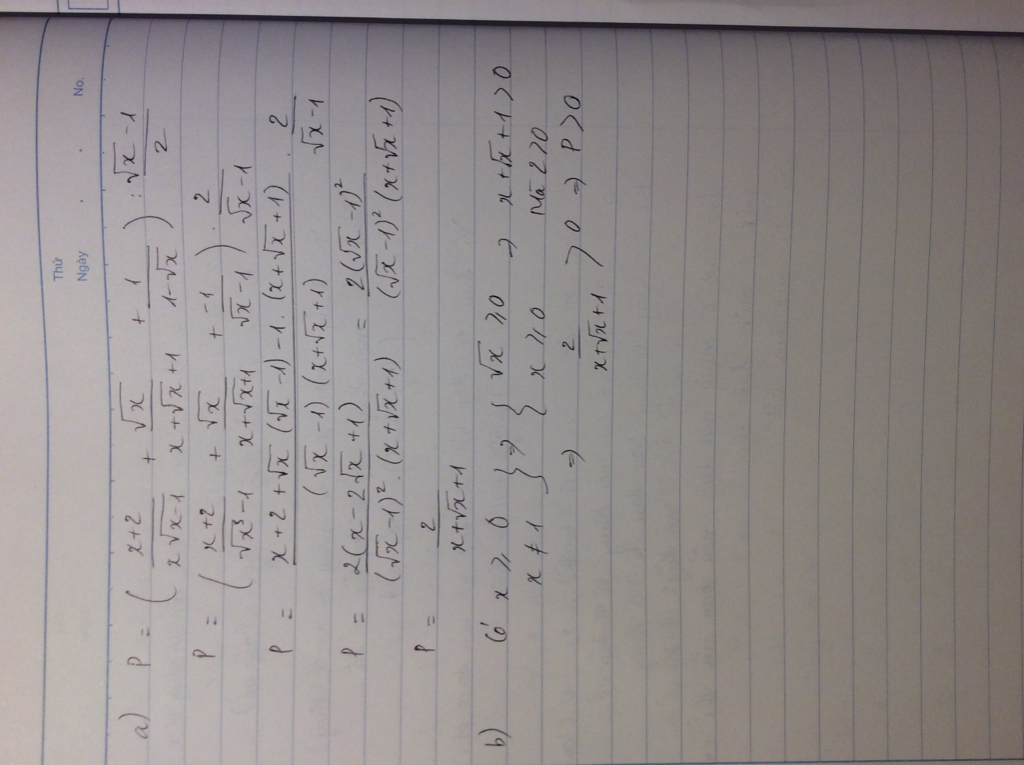 Thứ
Ngày . . No.
a) P = ( (x+2)/(x√x-1) + √x/(x+√x+1) + 1/(1-√x) ) : (√x-1)/2
P = ( (x+2)/(√x³-1) + √x/(x+√x+1) + -1/(√x-1) ) . 2/(√x-1)
P = (x+2+√x(√x-1)-1.(x+√x+1))/((√x-1)(x+√x+1)) . 2/(√x-1)
P = 2(x-2√x+1)/((√x-1)².(x+√x+1)) = 2(√x-1)²/((√x-1)²(x+√x+1))
P = 2/(x+√x+1)
b) Có x ⩾ 0 } ⇒ { √x ⩾ 0 ⇒ x+√x+1 > 0
x ≠ 1 } ⇒ { x ⩾ 0 Mà 2 > 0
⇒ 2/(x+√x+1) > 0 ⇒ P > 0